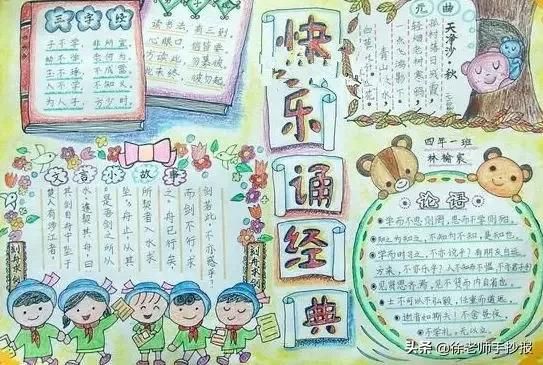 三字经
子不学 非所宜
幼不学 老何为
玉不琢 不成器
人不学 不知义
为人子 方少时
读书法，有三到
心眼口 信皆要
方读此 勿慕彼
此未终 彼勿起
快乐诵经典
元曲
天净沙·秋
孤村落日残霞，
轻烟老树寒鸦，
一点飞鸿影下。
青山绿水，
白草红叶黄花。
四年一班
林榆
文言小故事
刻舟求剑
楚人有涉江者，
其剑自舟中坠于
水，遽契其舟，曰：
“是吾剑之所从
坠。”舟止，从其
所契者入水求
之。舟已行矣，
而剑不行，求
剑若此，不亦惑乎？
刻舟求剑
论语
学而不思则罔，思而不学则殆。
知之为知之，不知为不知，是知也。
学而时习之，不亦说乎？有朋友自远
方来，不亦乐乎？人不知而不愠，不亦君子乎
见贤思齐焉，见不贤而内自省也
士不可以不弘毅，任重而道远。
逝者如斯夫！不舍昼夜
不学礼，无以立。
头条 @徐老师手抄报